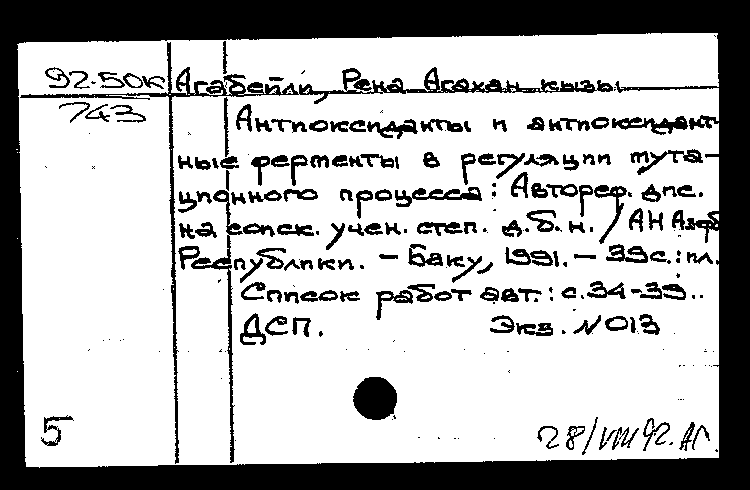 92-50к Агабейли, Рена Агахан кызы
743
Антиоксиданты и антиоксидант-
ные ферменты в регуляции мута-
ционного процесса: Автореф. дис.
на соиск. учен. степ. д.б.н. / АН Азерб
Республики. - Баку, 1991. - 39с.: ил.
Список работ авт.: с.34-39..
ДСП. Экз. N013
5
28/VIII 92. АГ.